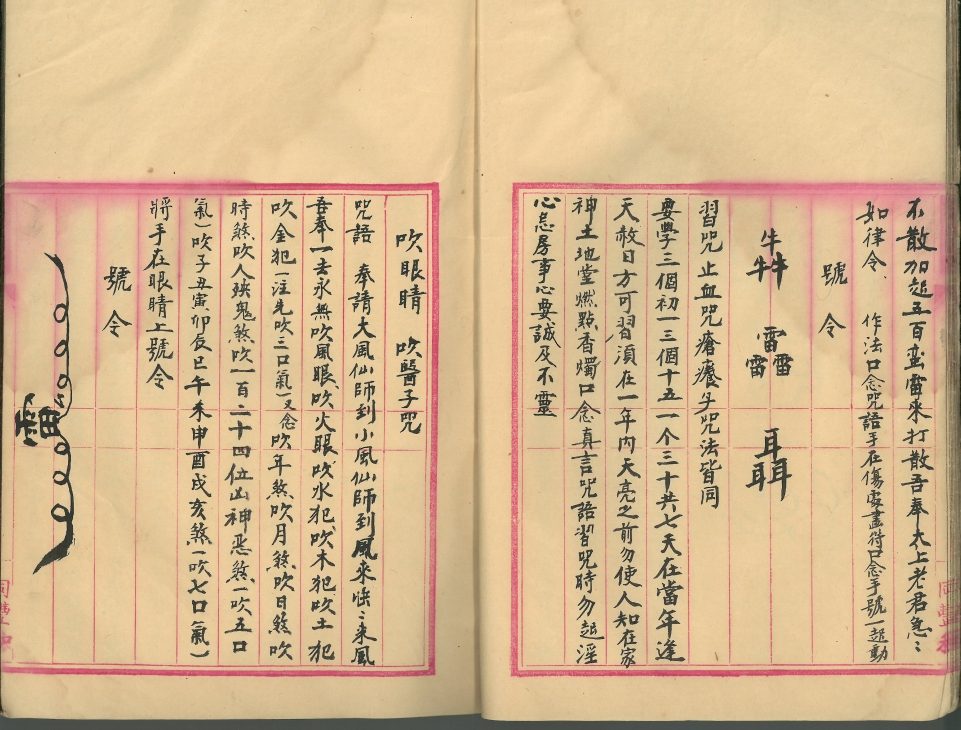 不散加起五百蛮雷來打散吾奉太上老君急〻
如律令、 作法口念咒語手在傷處畫符口念手號一起動
號令
犇 靐 聶
習咒 止血咒瘡癢子咒法皆同
要學三個初一三個十五一个三十共七天在當年逢
天赦日方可習須在一年内天亮之前勿使人知在家
神土地堂燃點香燭口念真言咒語習咒時勿起淫
心忌房事心要誠及不靈
吹眼睛 吹醫子咒
咒語 奉請大風仙師到小風仙師到風來悠〻來風
吾奉一去永無吹風眼、吹火眼、吹水犯、吹木犯吹土犯
吹金犯(一注先吹三口氣)又念吹年煞吹月煞吹日煞吹
時煞吹人殃鬼煞吹一百二十四位凶神惡煞(一吹五口
氣)吹子丑寅卯辰巳午未申酉戌亥煞(一吹七口氣)
將手在眼睛上號令
號令
雷
同豐